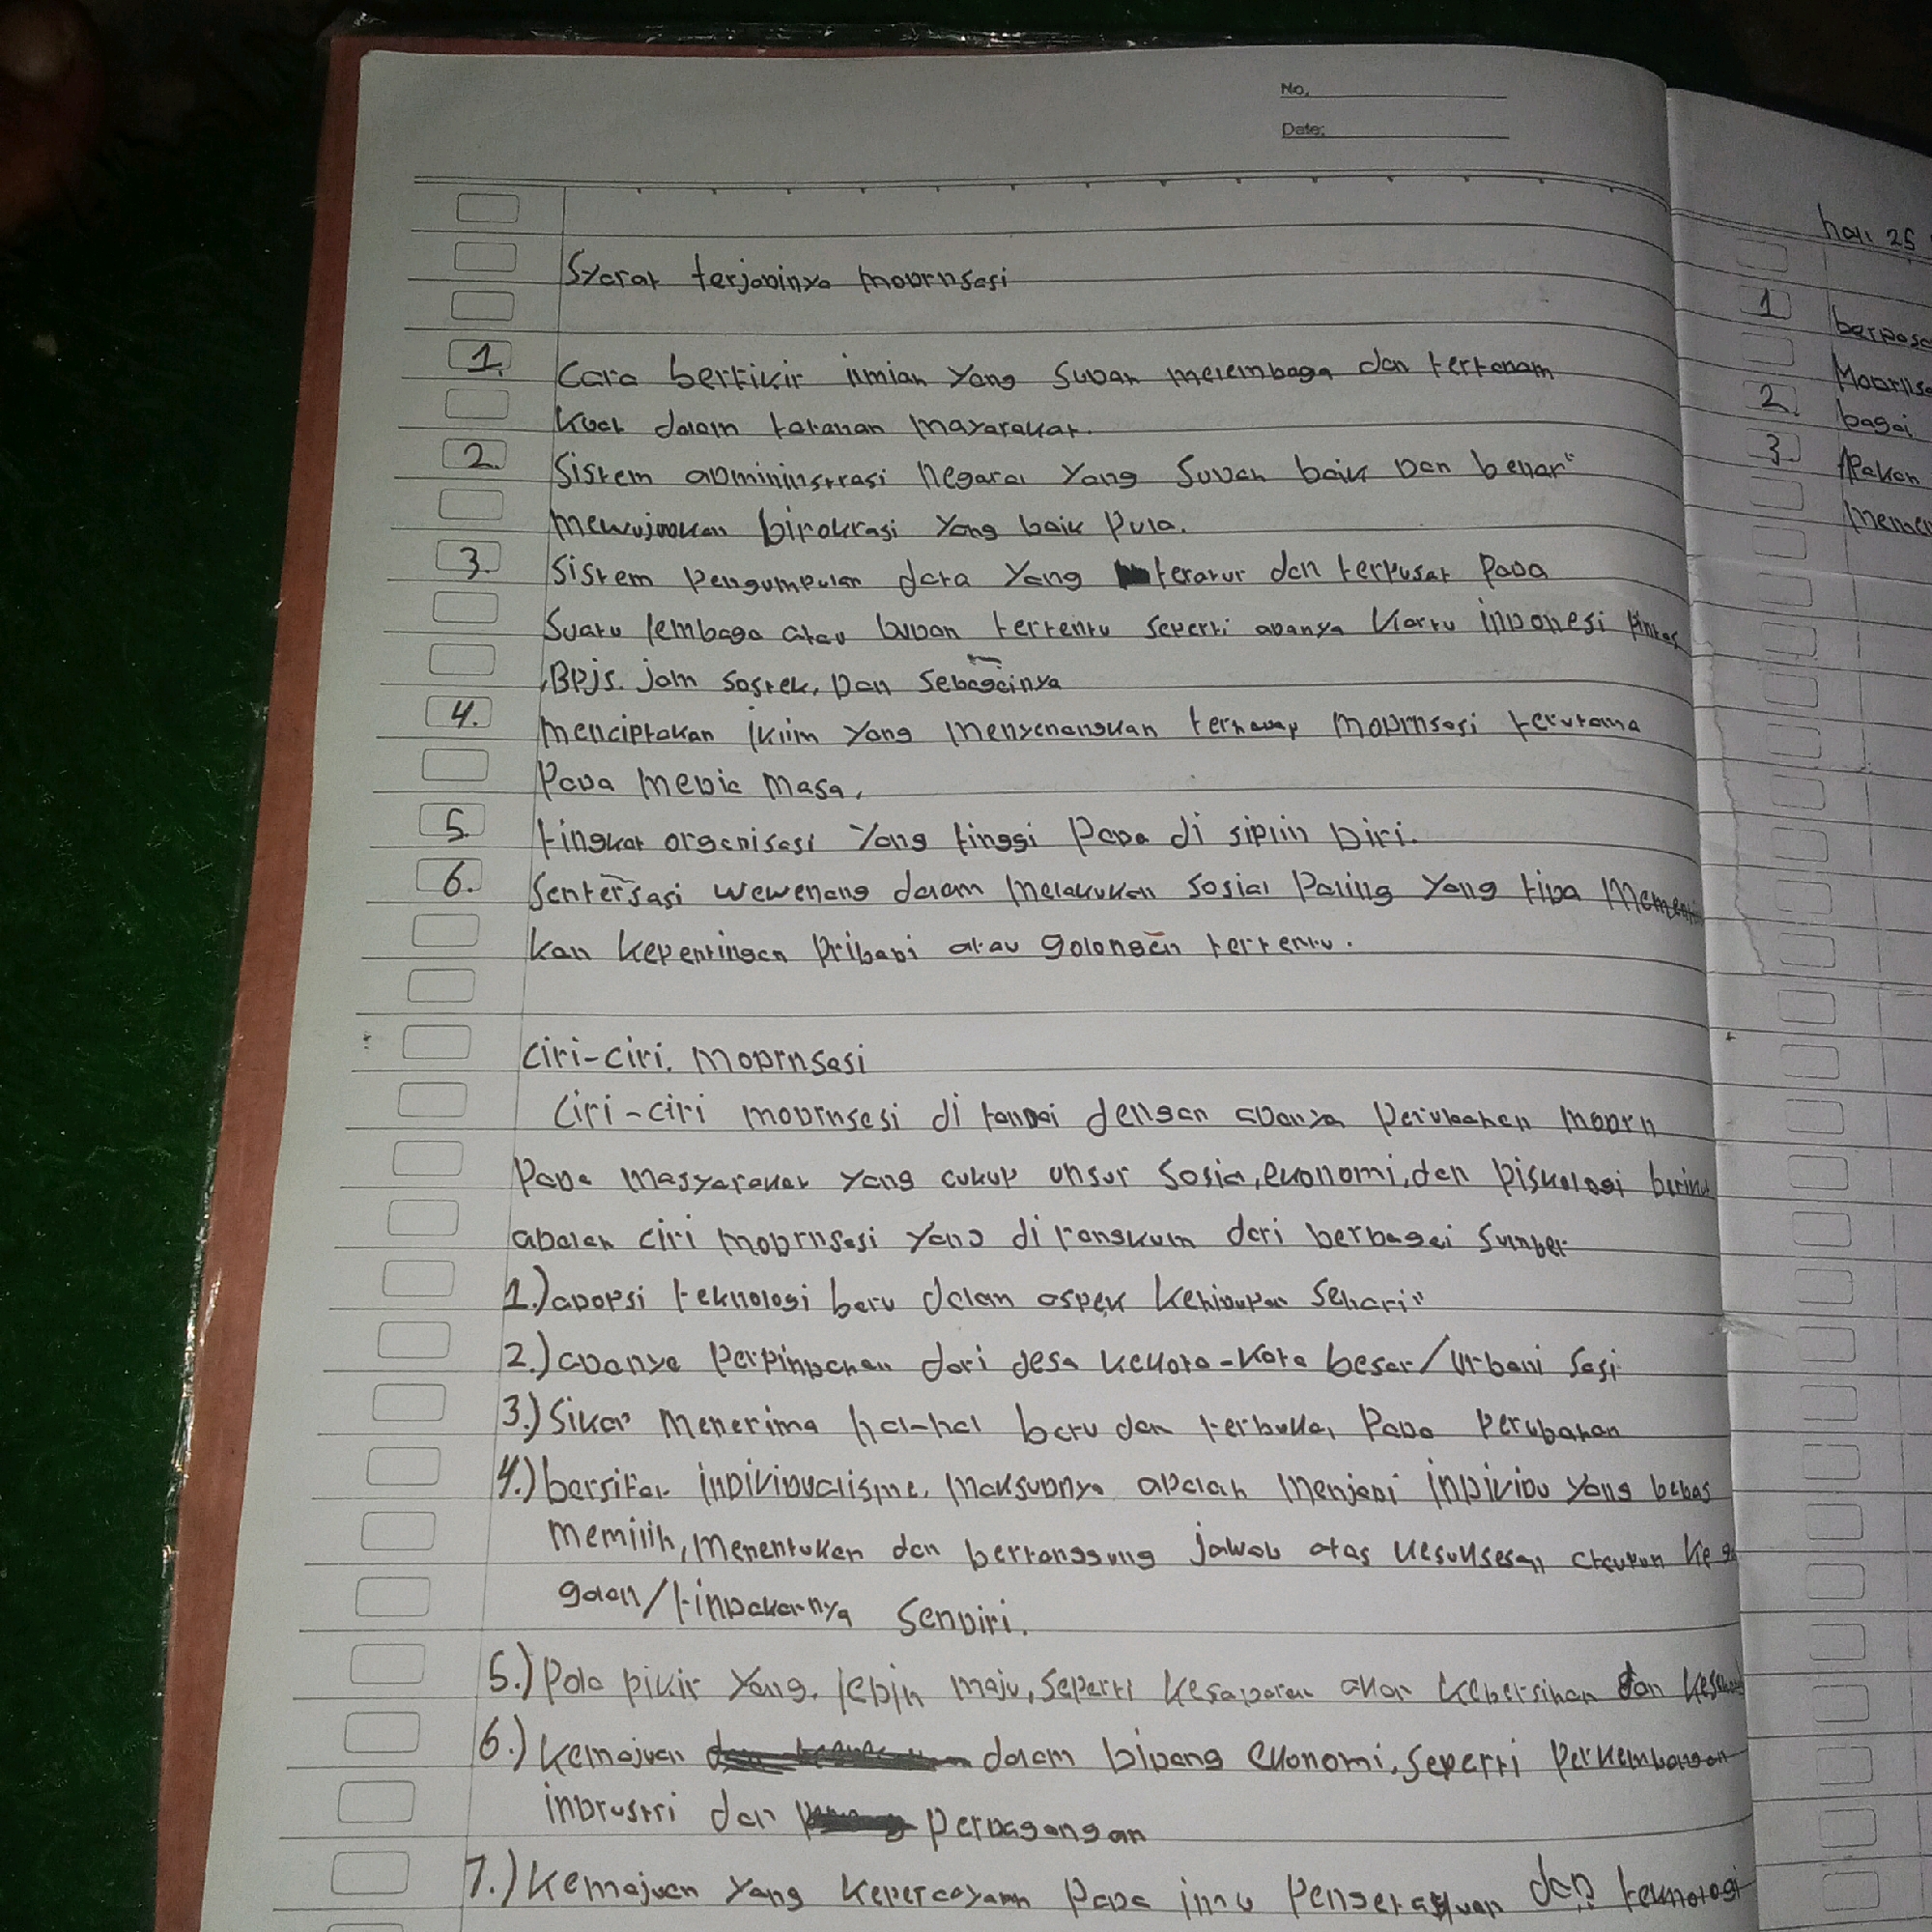 No.
Date:
Syarat terjadinya modrnsasi
1. Cara berfikir ilmiah yang sudah melembaga dan tertanam
kuat dalam tatanan mayarakat.
2. Sistem admininstrasi negara yang sudah baik dan benar"
mewujudkan birokrasi yang baik pula.
3. Sistem pengumpulan data yang teratur dan terpusat pada
suatu lembaga atau badan tertentu seperti adanya kartu indonesi pintar
,Bpjs. jam sostek, dan sebagainya
4. menciptakan iklim yang menyenangkan terhadap modrnsasi terutama
pada media masa.
5. tingkat organisasi yang tinggi pada di siplin diri.
6. Sentersasi wewenang dalam melakukan sosial paling yang tida
kan kepentingan pribadi atau golongan tertentu.
ciri-ciri. modrnsasi
Ciri-ciri modrnsasi di tandai dengan adanya perubahan modrn
pada masyarakat yang cukup unsur sosia, ekonomi, dan piskologi
adalah ciri modrnsasi yang di rangkum dari berbagai sumber
1.) adopsi teknologi baru dalam aspek kehidupan sehari"
2.) adanya perpindahan dari desa kekota-kota besar/urbani sasi
3.) Sikap menerima hal-hal baru dan terbuka, pada perubahan
4.) bersifat individualisme, maksudnya adalah menjadi individu yang bebas
memilih, menentukan dan bertanggung jawab atas kesuksesan ataupun keg
galan/tindakannya sendiri.
5.) Pola pikir yang. lebih maju, seperti kesadaran akan kebersihan dan
6.) kemajuan dalam bidang ekonomi, seperti perkembangan
indrustri dan perdagangan
7.) kemajuan yang kepercayaan pada ilmu pengetahuan dan teknologi
hal: 25
1
2 bagai
3